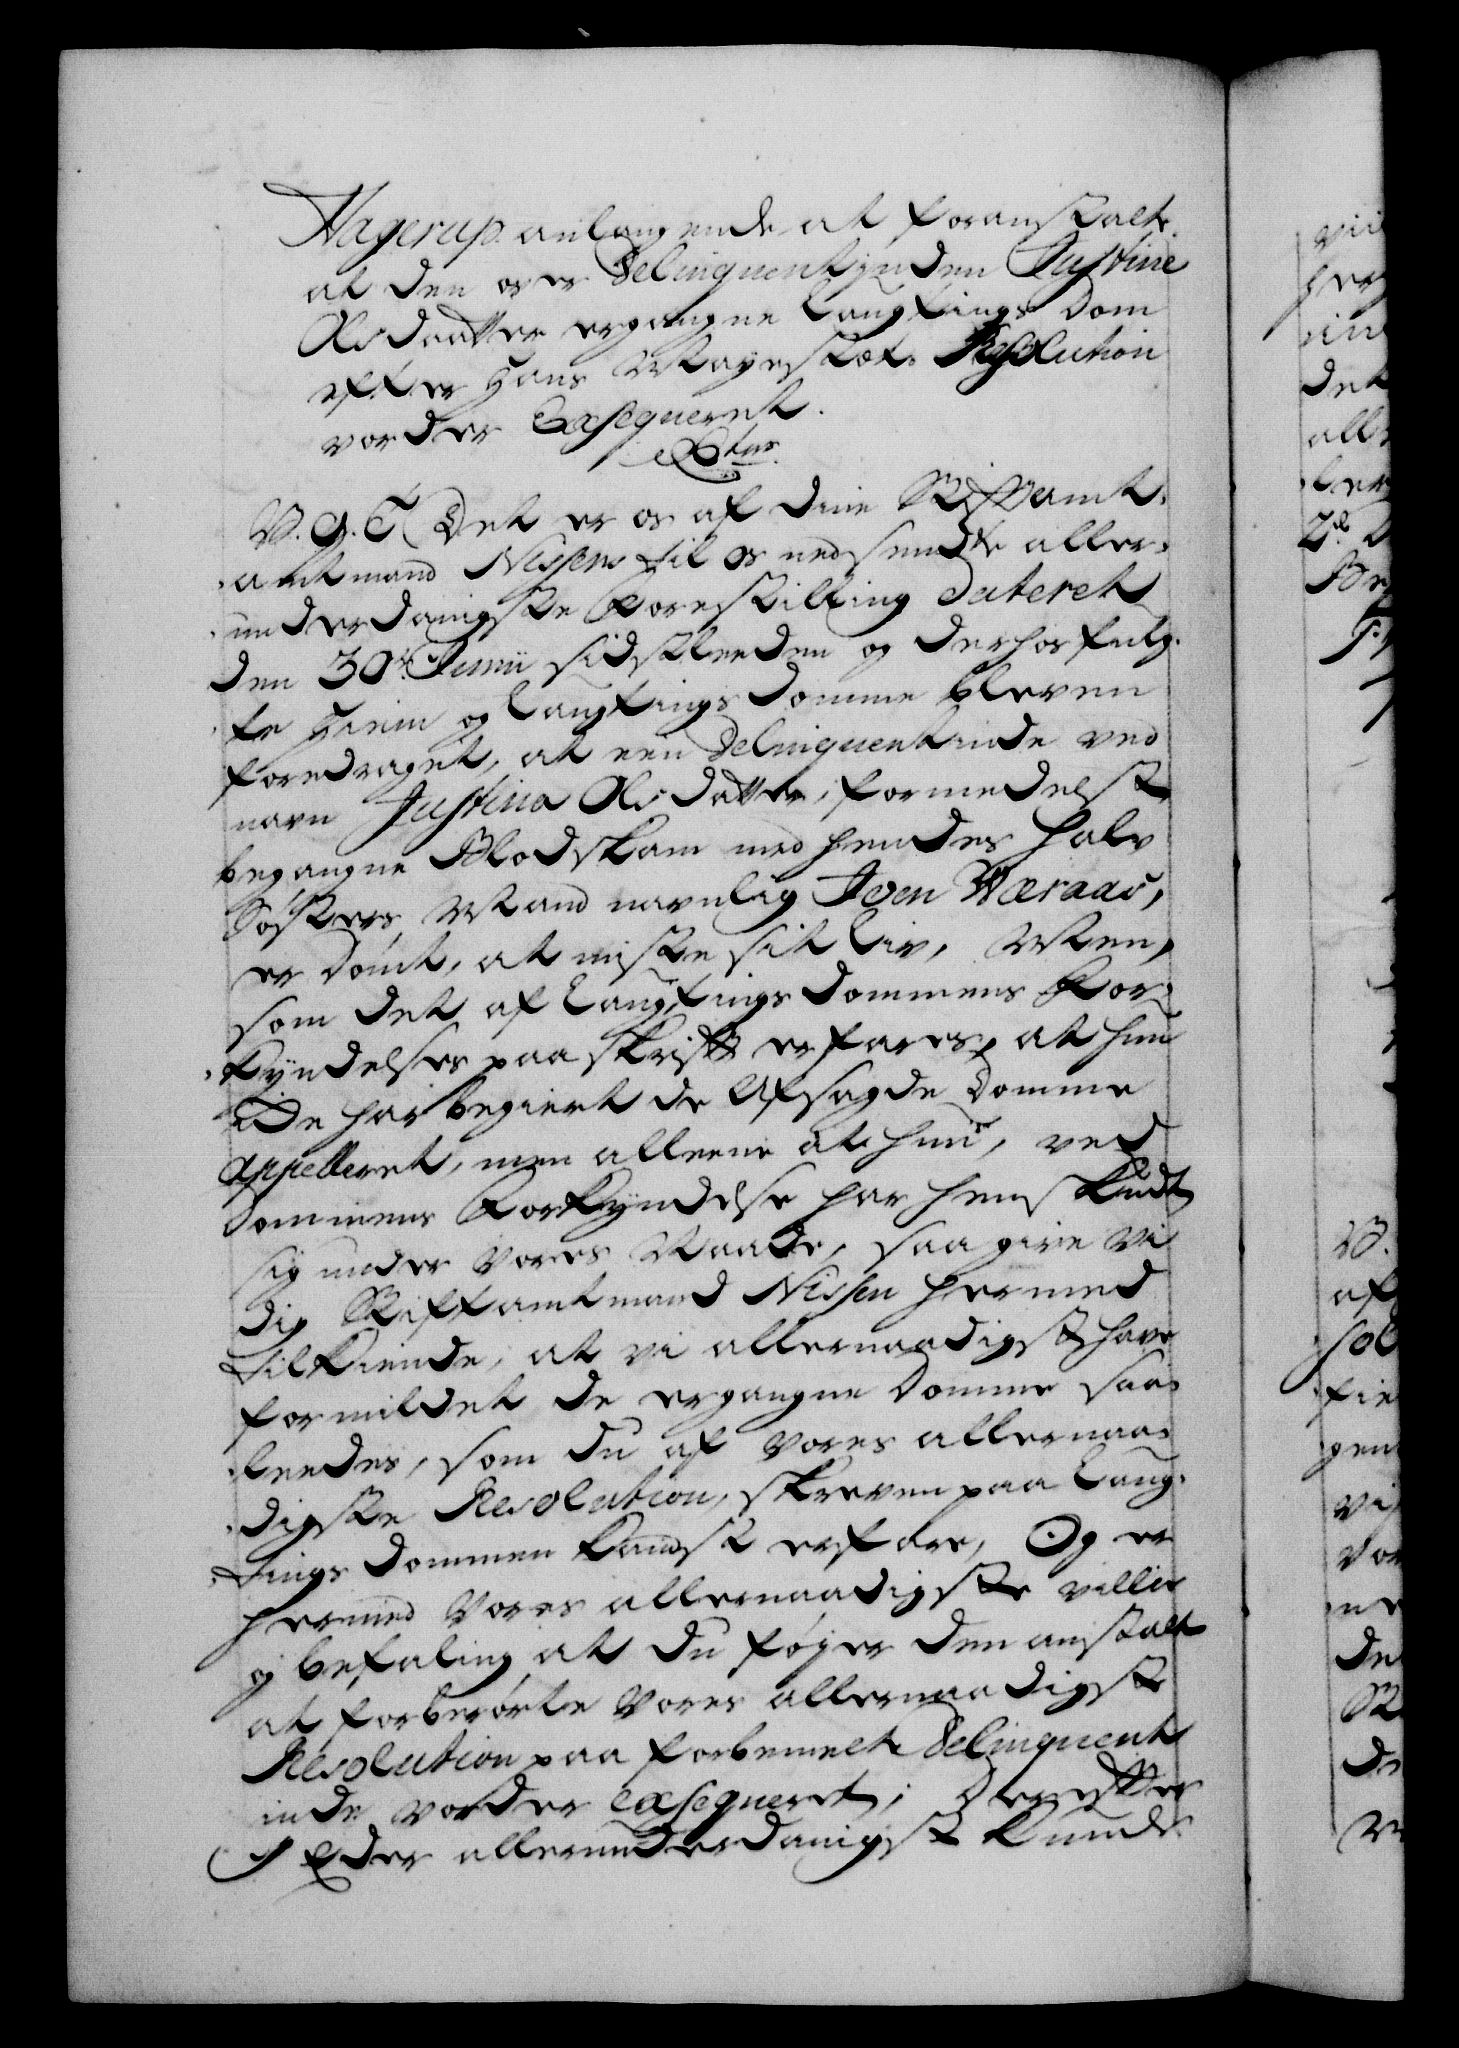 Hagerup anlangende at foranstalte
at den over Delinquentqinden Justine
Olsdaatter ergangne Laugtings Dom
efter Hans Mayestæts Resolution
vorder Exseqveret.
C. 6tus
V. G. T. Det er os af dine Stiftamt-
amtmand Nissens til os nedsendte aller-
underdanigste Forestilling dateret
den 30te Junii sidstleeden og derhos fulg-
te Hiem og Laugtings Domme bleven
foredraget, at een Delinquentinde ved
navn Justina Olsdatter, formedelst
begangne Blodskam med hendes halv
Søsters Mand navnlig Iven Væraas,
er dømt, at miste sit Liv, Men,
som det af Laugtings Dommens For-
kyndelses paaskrift erfares, at hun
icke har begiert de Afsagde Domme
appelleret, men alleene at hun, ved
Dommens Forkyndelse har henskudt
sig under Vores Naade, saa give Vi
dig Stiftamtmand Nissen hermed
tilkiende, at vi allernaadigst have
formildet de ergangne Domme saa-
leedes, som du af Vores allernaa-
digste Resolution, skreven paa Laug-
tings Dommen kandst erfare, Og er
hermed Vores allernaadigste villie
og befaling, at du føyer den anstalt
at forberørte Vores allernaadigste
Resolution paa forbemelte Delinquent
inde vorder exseqveret; Derefter
I Eder allerunderdanigst kunde